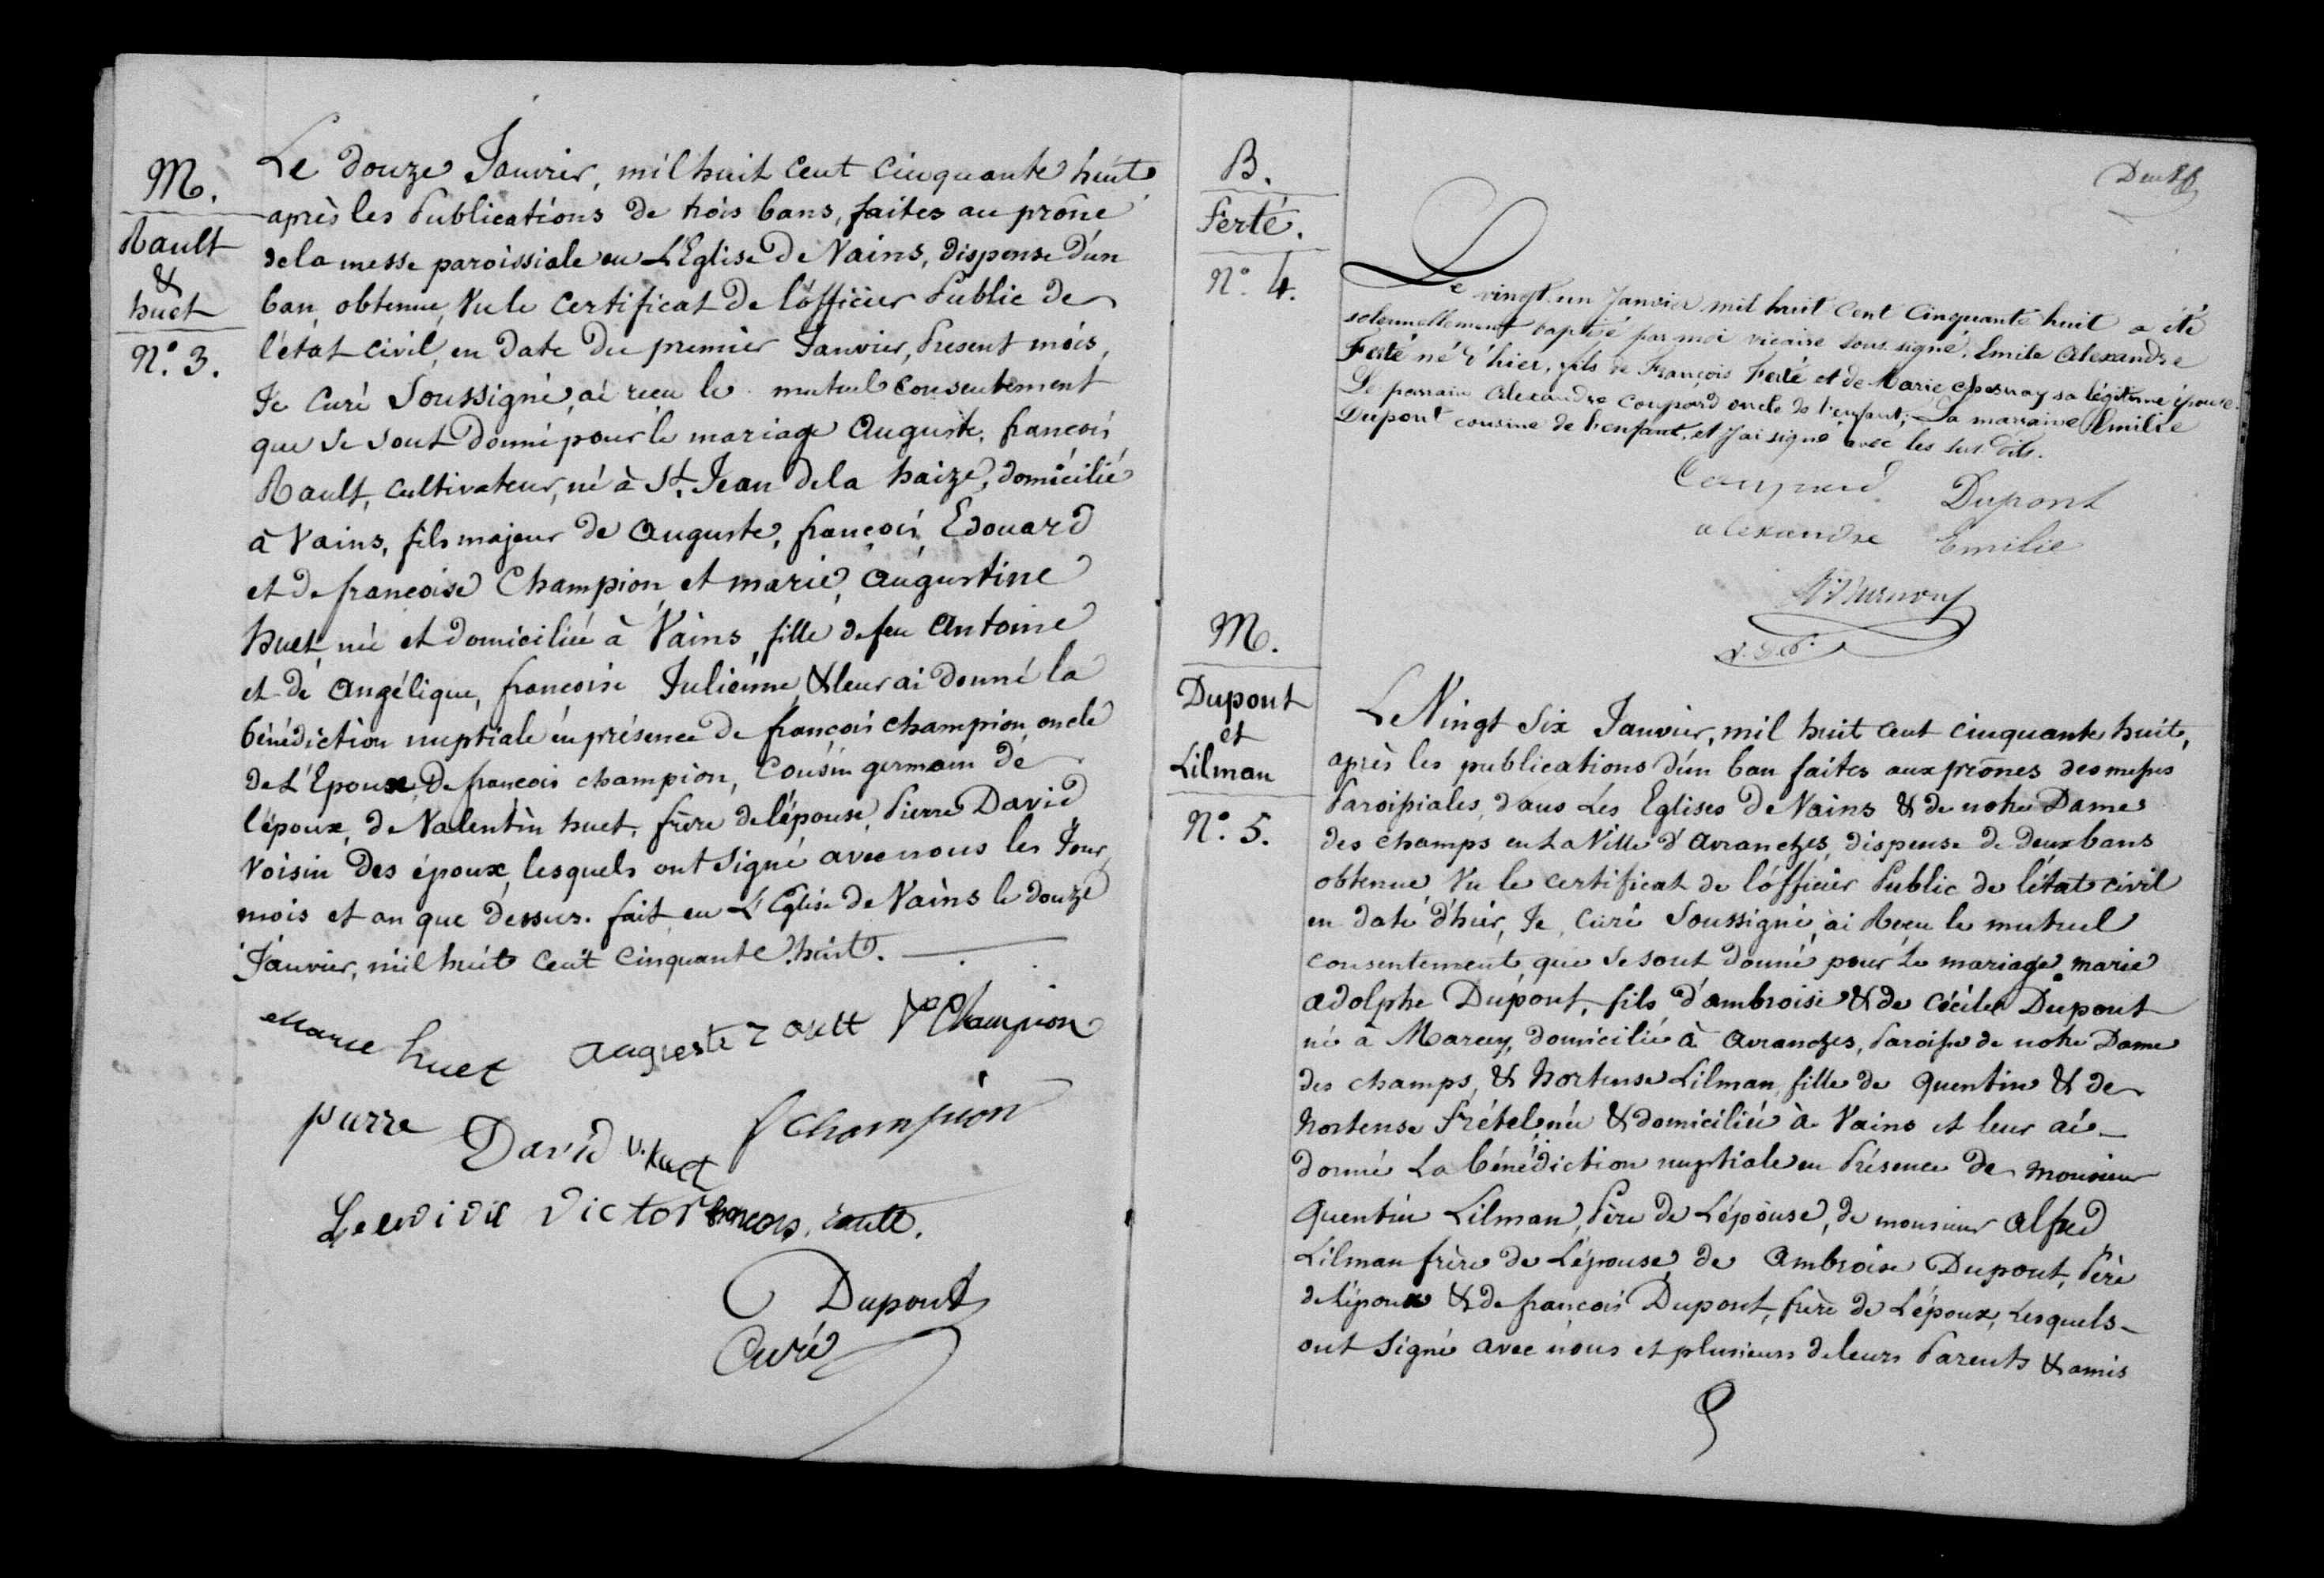 M.
Rault
&
huet
N.º 3.
Le douze Janvier, mil huit cent cinquante huit
après les Publications de trois bans, faites au prône
de la messe paroissiale en L'Eglise de Vains, dispense d'un
ban, obtenue, Vu le certificat de l'officier Public de
l'état civil, en date du premier Janvier, Present mois,
Je Curé Soussigné, ai recu le mutuel consentement
que se sont donné pour le mariage Auguste, francois
Rault, cultivateur, né à St. Jean de la haize, domicilié
à Vains, fils majeur de Auguste, françois, Edouard
et de francoise Champion et marie, Augustine
huet, née et domiciliée à Vains, fille de feu Antoine
et de Angélique, francoise Julienne, & leur ai donné la
bénédiction nuptiale en présence de françois champion, oncle
de L'Epoux, De francois champion, Cousin germain de
l'époux, de Valentin huet, frère de l'épouse, Pierre David
Voisin des époux, lesquels ont signé avec nous les Jour,
mois et an que dessus. fait en L'Eglise de Vains le douze
Janvier, mil huit cent cinquante huit.
Marie huet auguste rault Champion
pierre David V. huet f champion
victor francois rault.
Dupont
Curé
B.
Ferté.
N.º 4.
Le vingt-un Janvier mil huit cent cinquante huit a été
solennellement baptisé par moi vicaire sous signé, Emile Alexandre
Ferté né d'hier, fils de François Ferté et de Marie Chesnay sa légitime épouse.
Le parrain Alexandre Coupard oncle de l'enfant; La marraine Emilie
Dupont cousine de l'enfant, et j'ai signé avec les sus dits.
Coupard Dupont
alexandre Emilie
M.
Dupont
et
Lilman
N.º 5.
Le Vingt Six Janvier, mil huit cent cinquante huit,
après les publications d'un ban faites aux prônes des messes
Paroissiales, dans Les Eglises de Vains & de notre Dame
des champs en La Ville d'Avranches, dispense de deux bans
obtenue, Vu le certificat de l'officier Public de l'état civil
en date d'hier, Je, Curé Soussigné, ai Recu le mutuel
consentement, que se sont donné pour le mariage, marie
adolphe Dupont, fils d'ambroise & de Cécile Dupont
né à Marcey, domicilié à Avranches, Paroisse de notre Dame
des champs, & hortense Lilman, fille de Quentin & de
hortense Frétel, née & domiciliée à Vains et leur ai
donné La bénédiction nuptiale en Présence de monsieur
Quentin Lilman, Père de L'épouse, de monsieur Alfred
Lilman frère de L'épouse, de Ambroise Dupont, Père
de l'époux & de françois Dupont, frère de L'époux, Lesquels
ont signé avec nous et plusieurs de leurs Parents & amis